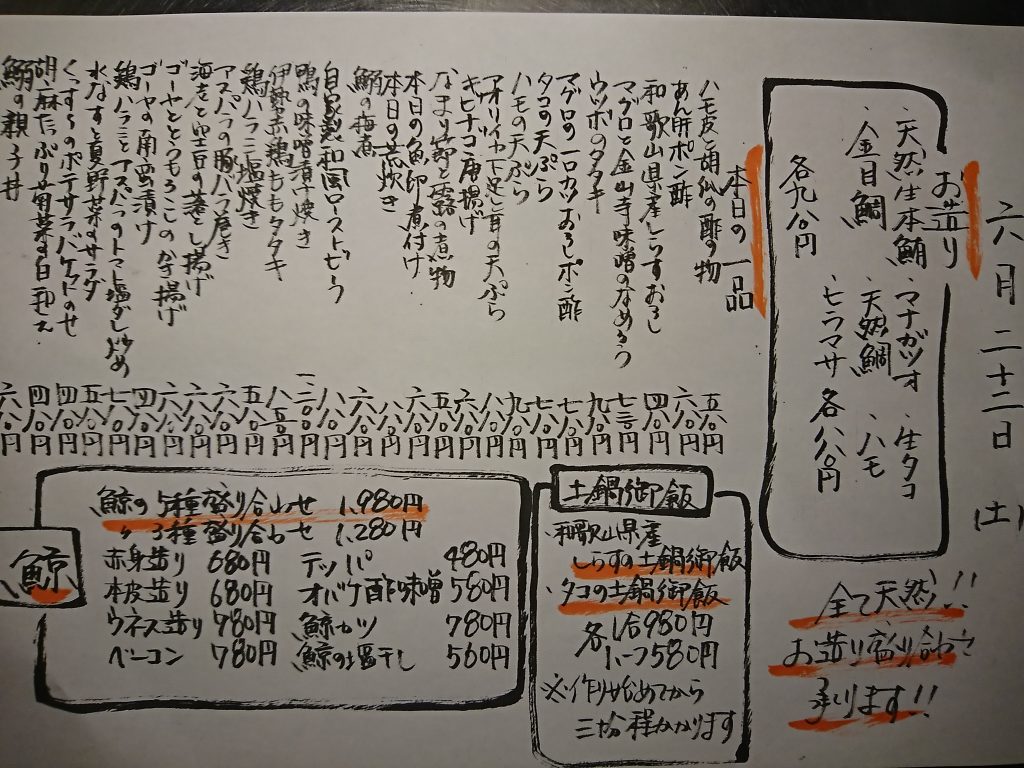 六月二十二日(土)
お造り
・天然生本鮪 ・マナガツオ ・生タコ
・金目鯛 ・天然鯛 ・ハモ
各九八〇円 ・ヒラマサ 各八八〇円
全て天然!!
お造り盛り合わせ
承ります!!
本日の一品
ハモ皮と胡瓜の酢の物 五八〇円
あん肝ポン酢 六八〇円
和歌山県産しらすおろし 四八〇円
マグロと金山寺味噌のなめろう 七三〇円
ウツボのタタキ 九八〇円
マグロの一口カツおろしポン酢 七八〇円
タコの天ぷら 七八〇円
ハモの天ぷら 九八〇円
アオリイカ下足と耳の天ぷら 八八〇円
キビナゴ唐揚げ 六八〇円
なまり節と蕗の煮物 五八〇円
本日の魚卵煮付け 六八〇円
本日の荒炊き 八八〇円
鰯の梅煮 六八〇円
自家製和風ローストビーフ 八八〇円
鴨の味噌漬け焼き 一二八〇円
伊勢赤鶏ももタタキ 八八〇円
鶏ハラミ塩焼き 五八〇円
アスパラの豚バラ巻き 六八〇円
海老と空豆の蓮し揚げ 六八〇円
ゴーヤととうもろこしのかき揚げ 六八〇円
ゴーヤの南蛮漬け 四八〇円
鶏ハラミとアスパラのトマト塩だし炒め 七八〇円
水なすと夏野菜のサラダ 五八〇円
くっすーのポテサラバケットのせ 四八〇円
胡麻たっぷり旬菜の白和え 四八〇円
鰯の親子丼 六八〇円
土鍋御飯
・和歌山県産
しらすの土鍋御飯
・タコの土鍋御飯
各 1合980円
1.5合1,580円
※作り始めてから
三十分程かかります
鯨
鯨の5種盛り合わせ 1,980円
〃3種盛り合わせ 1,280円
赤身造り 680円 テッパ 480円
本皮造り 680円 オバケ酢味噌 580円
ウネス造り 780円 鯨カツ 780円
ベーコン 780円 鯨の塩干し 560円